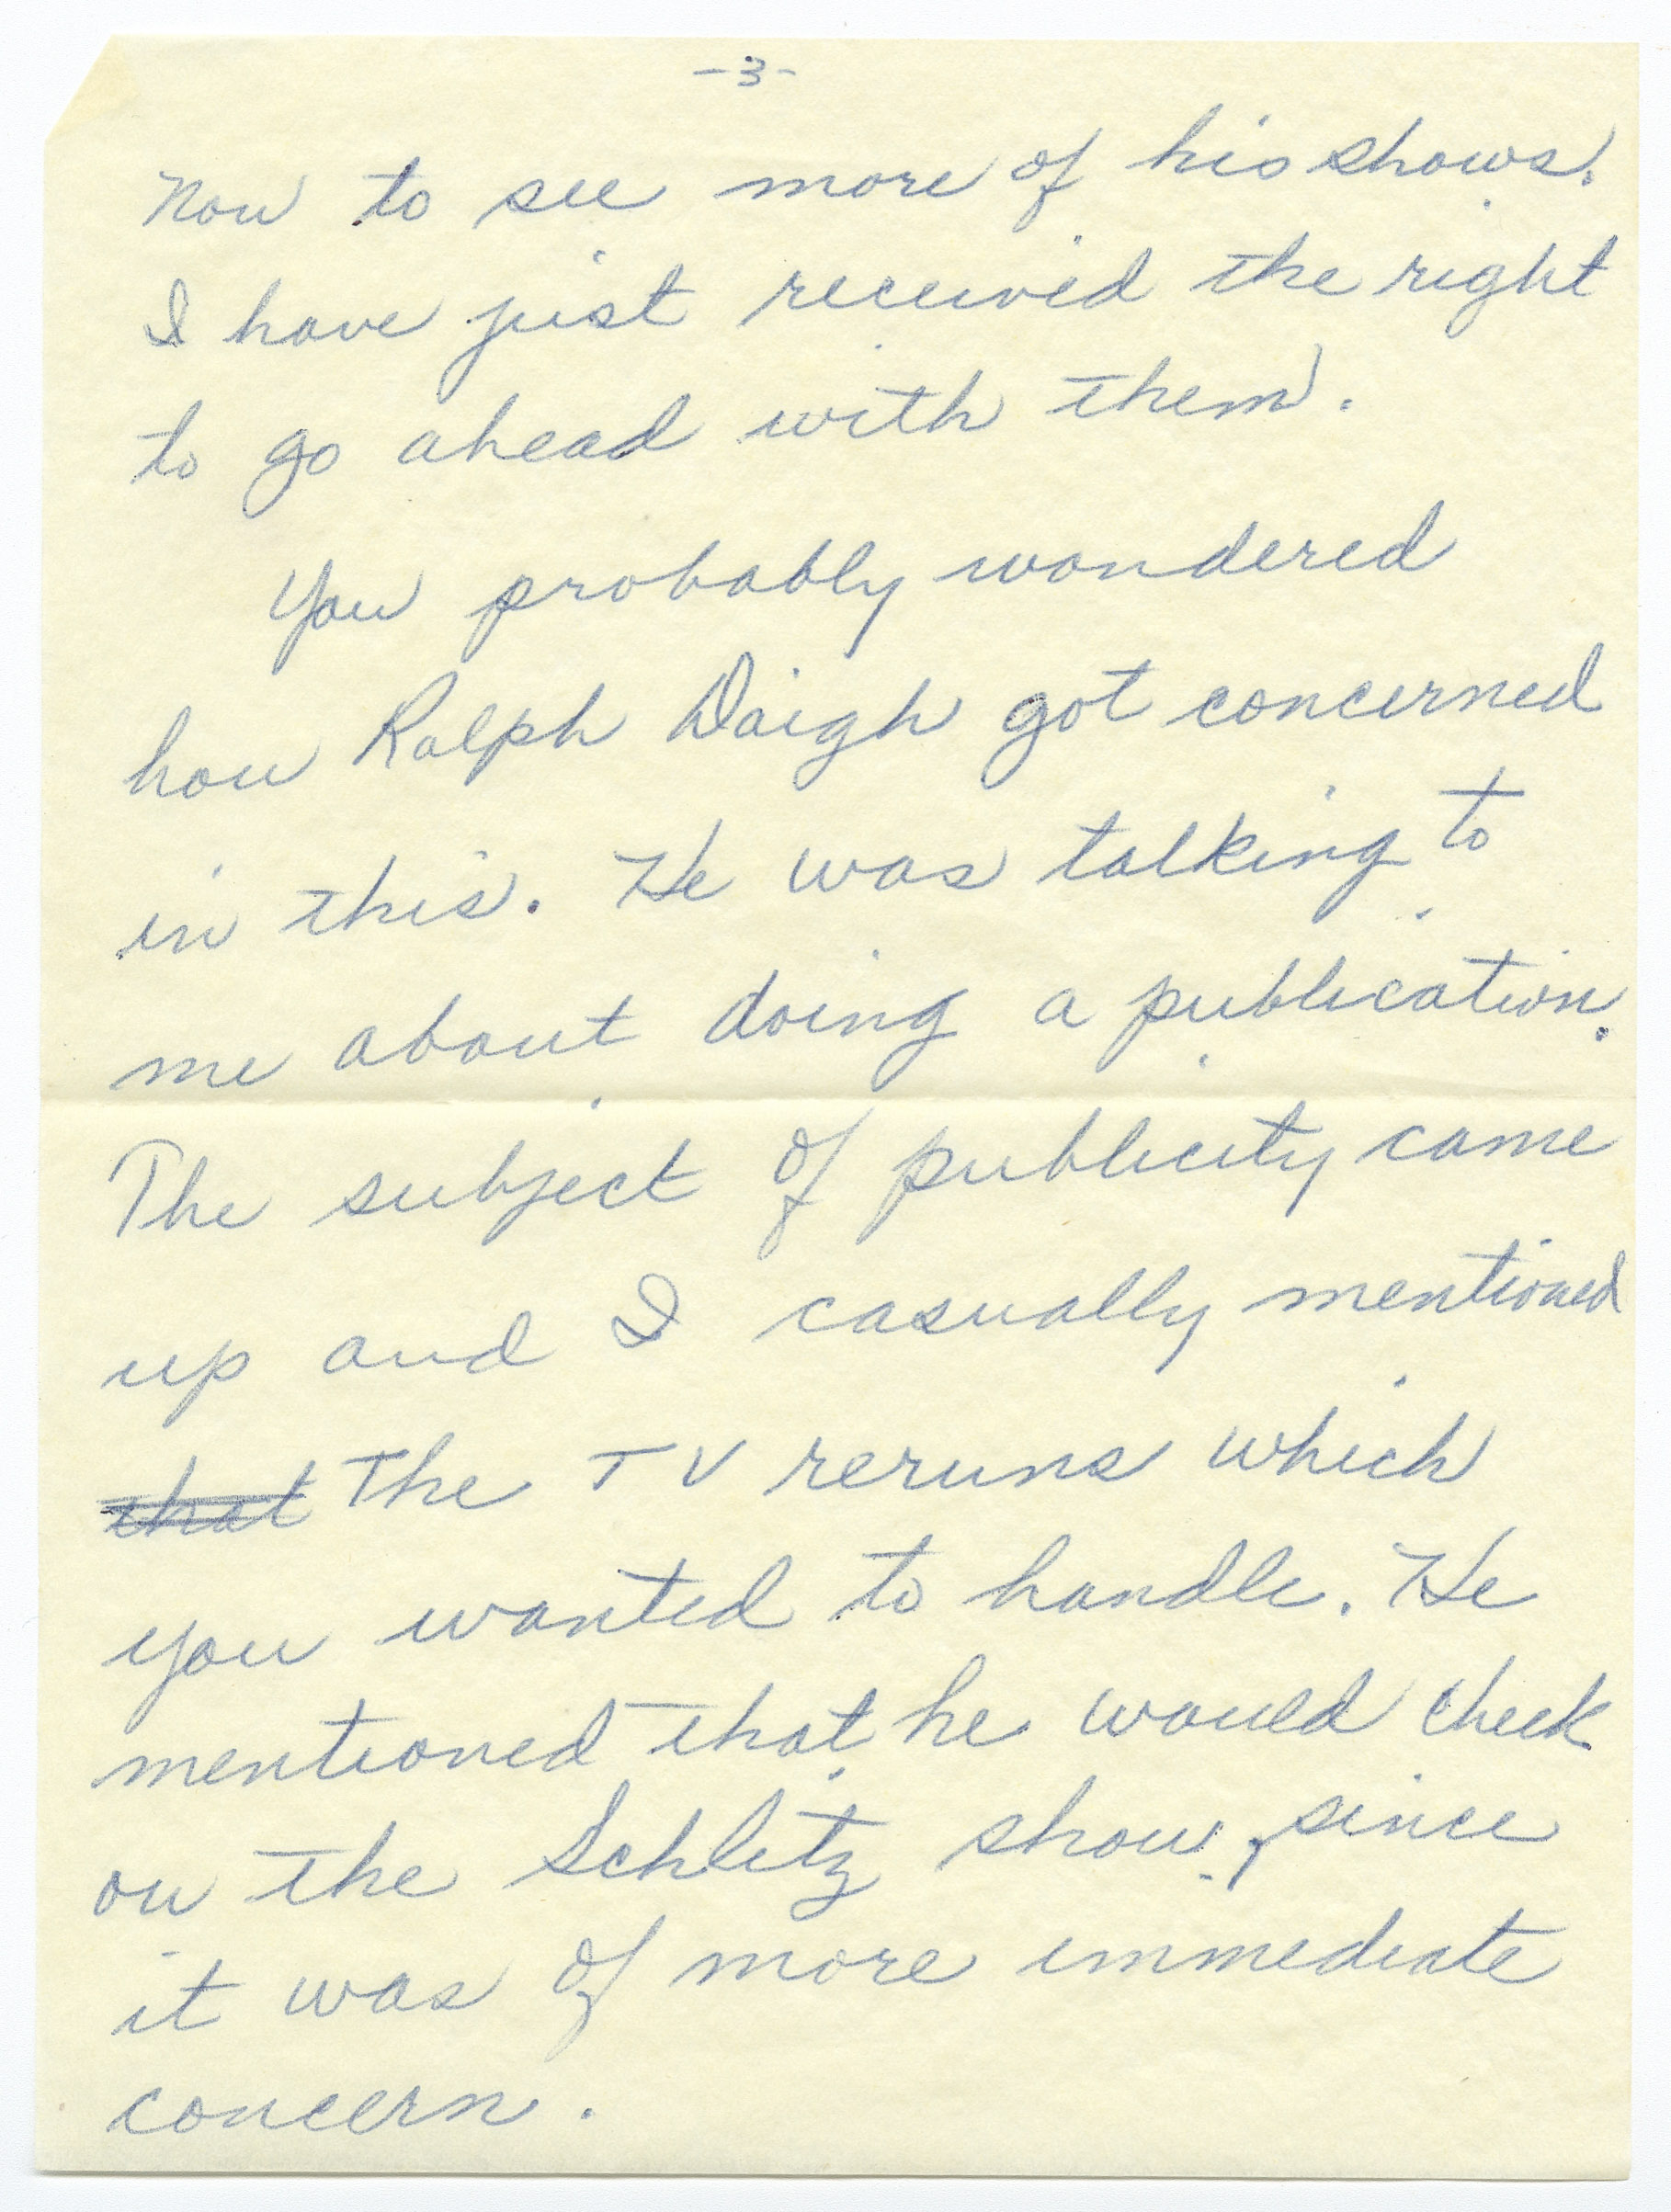 -3-
Now to see more of his shows.
I have just received the right
to go ahead with them.
You probably wondered
how Ralph Daigh got concerned
in this. He was talking to
me about doing a publication.
The subject of publicity came
up and I casually mentioned
~~that~~ The TV reruns which
you wanted to handle. He
mentioned that he would check
on the Schlitz show, since
it was of more immediate
concern.